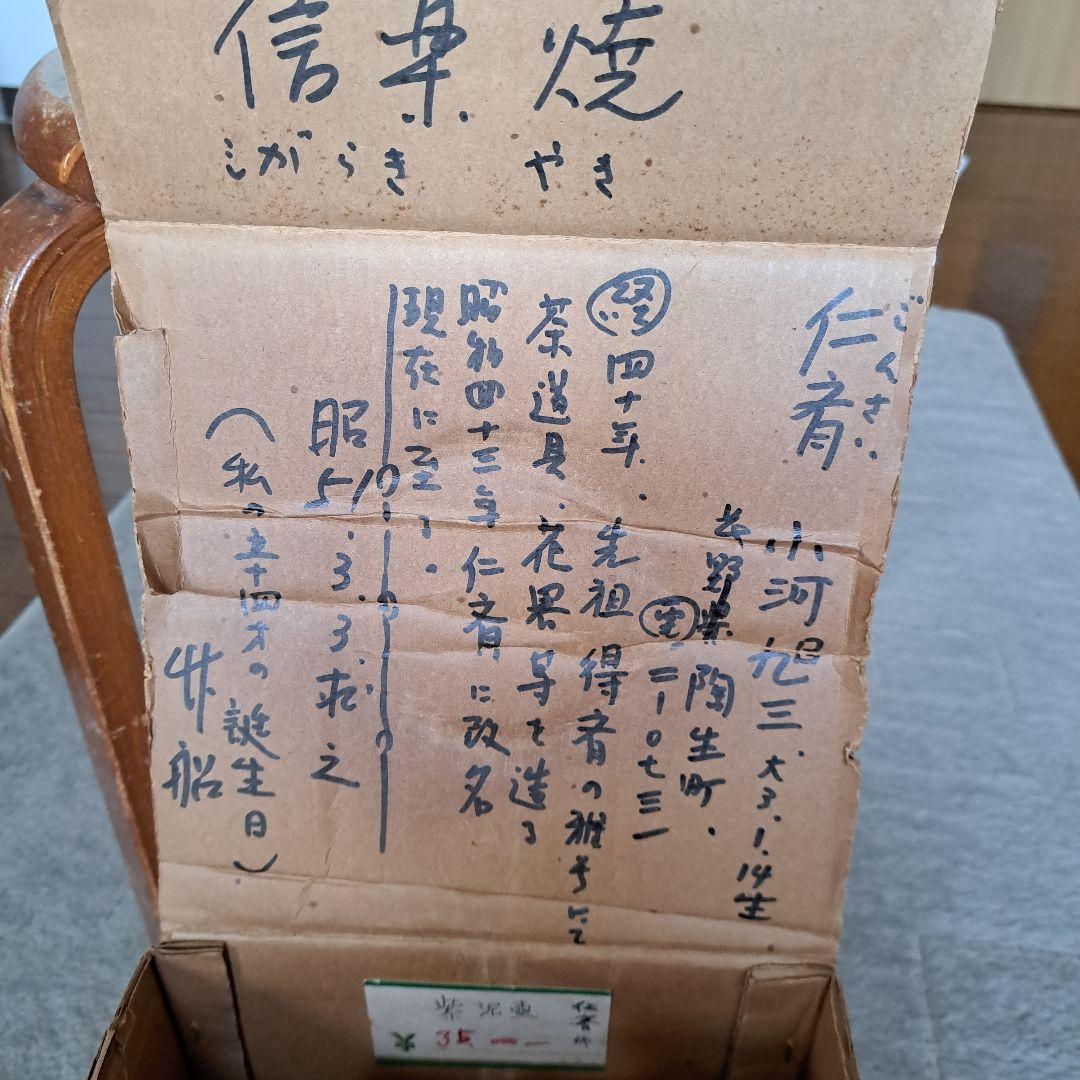 信楽焼
しがらきやき
仁斉
にんさい
小河旭三 大3.1.14生
長野県陶生町.
電 二一〇七三一
終 四十年. 先祖 得斉の雅号にて
茶道具、花器等を造る
昭和四十三年 仁斉に改名
現在に至る.
昭51.3.3. 求之
(私の五十四才の誕生日)
竹船
紫泥壷 仁斉作
¥ 35,000